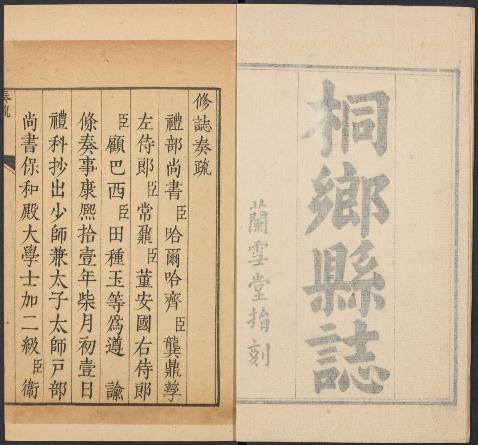 桐鄉縣誌
蘭雪堂指刻
修誌奏疏
禮部尚書臣哈爾哈齊臣龔鼎孳
左侍郎臣常鼐臣董安國右侍郎
臣顧巴西臣田種玉等爲遵諭
條奏事康熙拾壹年柒月初壹日
禮科抄出少師兼太子太師戶部
尚書保和殿大學士加二級臣衞
奏疏